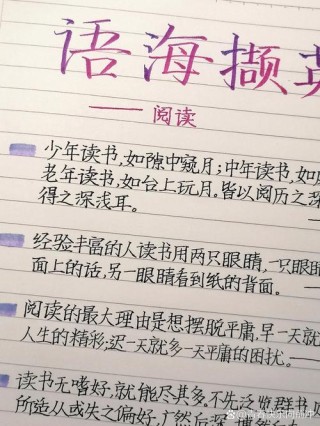 语海撷英
——阅读
少年读书,如隙中窥月;中年读书,如
老年读书,如台上玩月。皆以阅历之深
得之深浅耳。
经验丰富的人读书用两只眼睛,一只眼睛
面上的话,另一眼睛看到纸的背面。
阅读的最大理由是想摆脱平庸,早一天就
人生的精彩;迟一天就多一天平庸的困扰。
读书无嗜好,就能尽其多,不先泛览群书,
所适从或失之偏好,广然后深,博然后